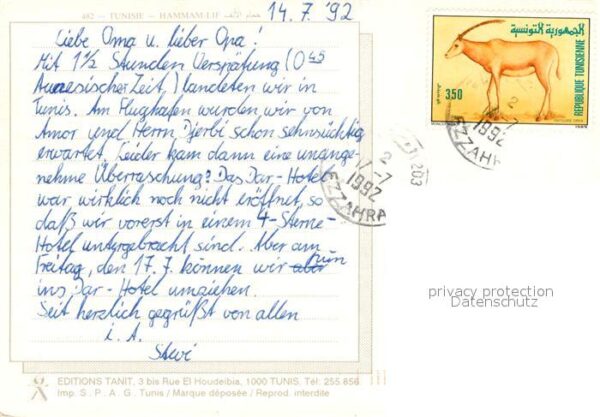 482 - TUNISIE - HAMMAM-LIF حمام الأنف
14.7.92
Liebe Oma u. lieber Opa!
Mit 1 1/2 Stunden Verspätung (0 45
Zeit,) landeten wir in
Tunis. Am Flughafen wurden wir von
Amor und Herrn Djerbi schon sehnsüchtig
erwartet. Leider kam dann eine unange-
nehme Überraschung: Das Dar-Hotel
war wirklich noch nicht eröffnet, so
daß wir vorerst in einem 4-Sterne-
Hotel untergebracht sind. Aber am
Freitag, den 17.7. können wir aber nun
ins Dar-Hotel umziehen.
Seit herzlich gegrüßt von allen
i. A.
EDITIONS TANIT, 3 bis Rue El Houdeibia, 1000 TUNIS. Tél: 255.856
Imp. S.P.A.G. Tunis / Marque déposée / Reprod. interdite
الجمهورية التونسية
REPUBLIQUE TUNISIENNE
350
2
7-7
1992
EZZAHRA
2
7-7
1992
EZZAHRA
privacy protection
Datenschutz